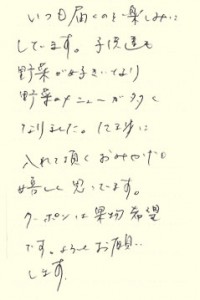 いつも届くのを楽しみに
しています。子供達も
野菜が好きになり
野菜のメニューが多く
なりました。
入れて頂くおみやげも
嬉しく思っています。
クーポンは果物希望
です。よろしくお願い
します。